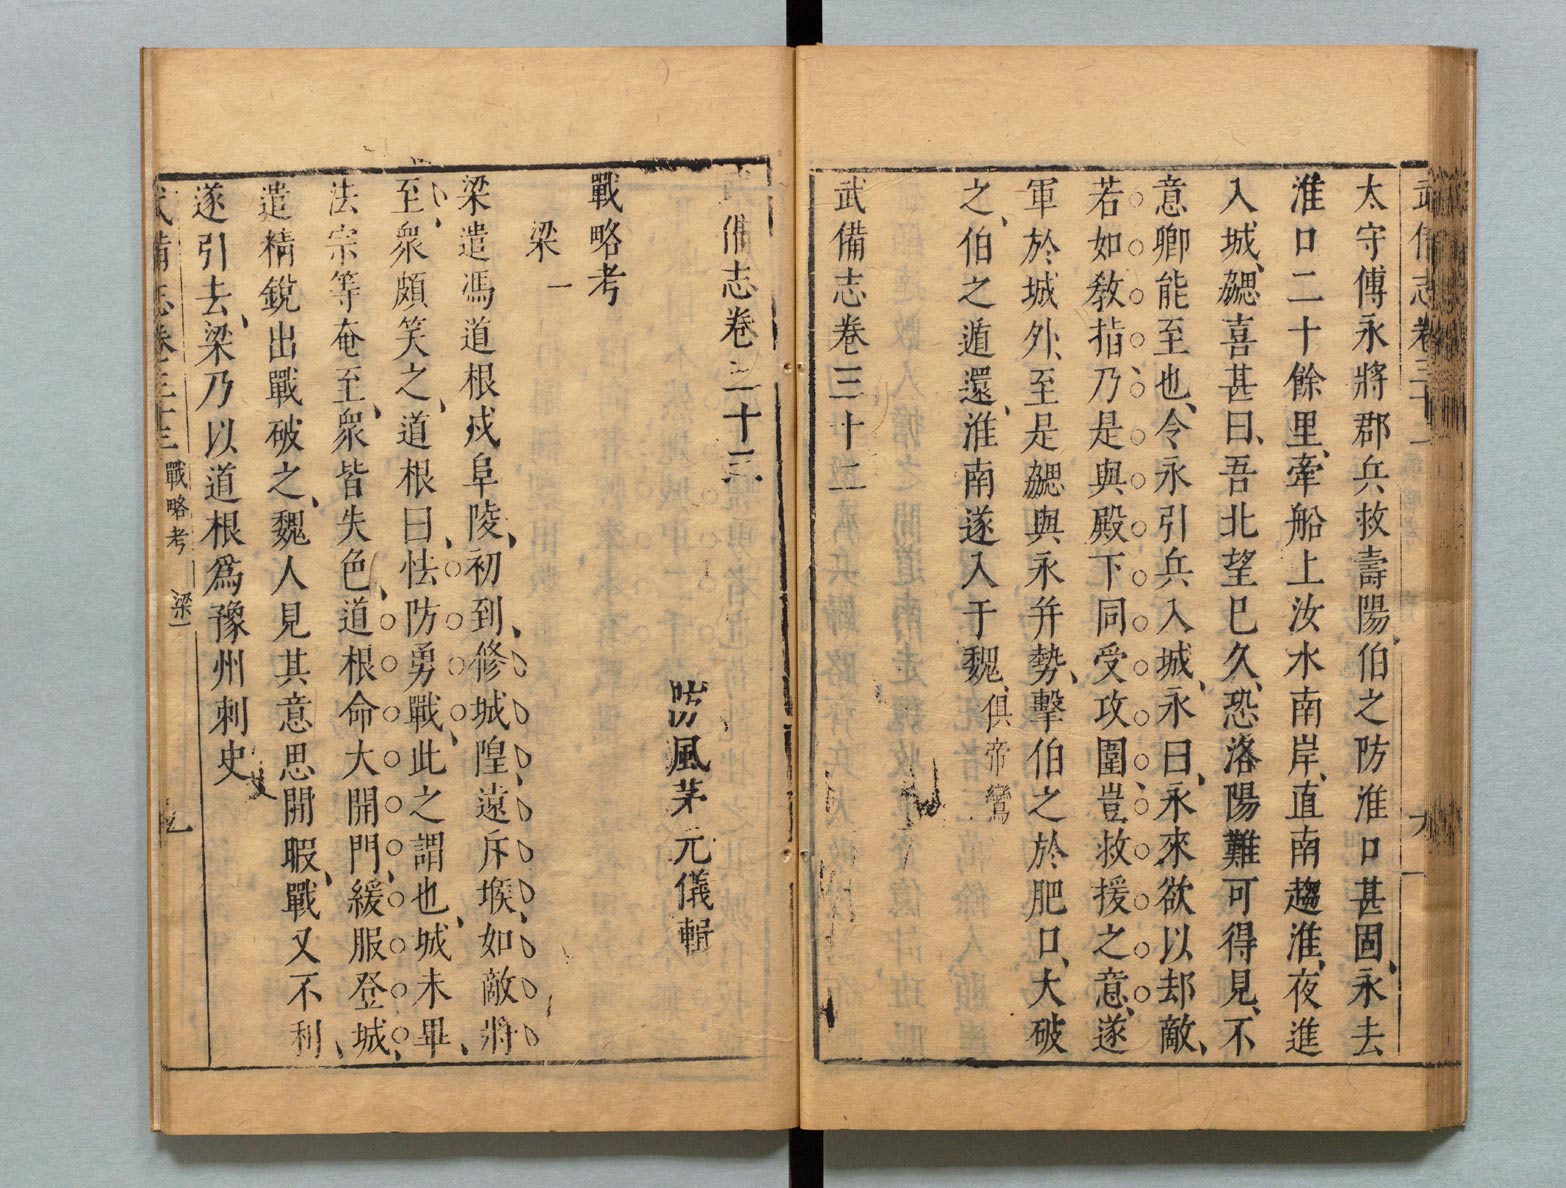 武備志卷三十二
九
太守傅永將郡兵救壽陽、伯之防淮口甚固、永去
淮口二十餘里、牽船上汝水南岸、直南趨淮、夜進
入城、勰喜甚曰、吾北望已久、恐洛陽難可得見、不
意卿能至也、令永引兵入城、永曰、永來欲以却敵、
若如敎指、乃是與殿下同受攻圍、豈救援之意、遂
軍於城外、至是勰與永并勢、擊伯之於肥口、大破
之、伯之遁還、淮南遂入于魏、俱帝鸞
武備志卷三十二
武備志卷三十三
防風茅元儀輯
戰略考
梁一
梁遣馮道根戍阜陵、初到、修城隍、遠斥堠、如敵將
至、衆頗笑之、道根曰、怯防勇戰、此之謂也、城未畢、
法宗等奄至、衆皆失色、道根命大開門、緩服登城、
遣精銳出戰破之、魏人見其意思閒暇、戰又不利、
遂引去、梁乃以道根爲豫州刺史
武備志卷三十三
戰略考
梁一